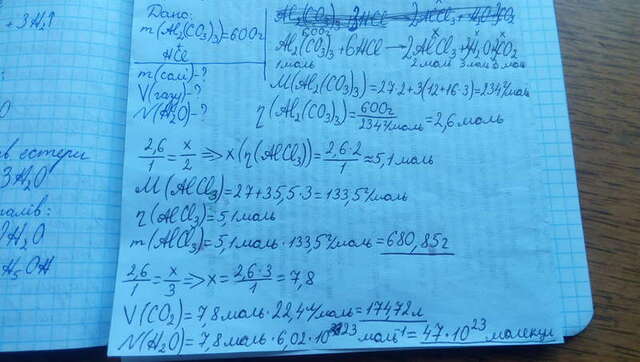 + 3H₂↑
естери
3H₂O
налів:
H₂O
H₅OH
Дано:
m(Al₂(CO₃)₃)=600г
HCl
m(солі)-?
V(газу)-?
N(H₂O)-?
600г x x x
Al₂(CO₃)₃+6HCl→2AlCl₃+3H₂O+3CO₂
1моль 2моль 3моль 3моль
M(Al₂(CO₃)₃)=27·2+3(12+16·3)=234г/моль
η(Al₂(CO₃)₃)=600г/234г/моль=2,6моль
2,6/1=x/2=>x(η(AlCl₃))=2,6·2/1≈5,1моль
M(AlCl₃)=27+35,5·3=133,5г/моль
η(AlCl₃)=5,1моль
m(AlCl₃)=5,1моль·133,5г/моль=680,85г
2,6/1=x/3=>x=2,6·3/1=7,8
V(CO₂)=7,8моль·22,4л/моль=174,72л
N(H₂O)=7,8моль·6,02·10²³моль⁻¹=47·10²³молекул